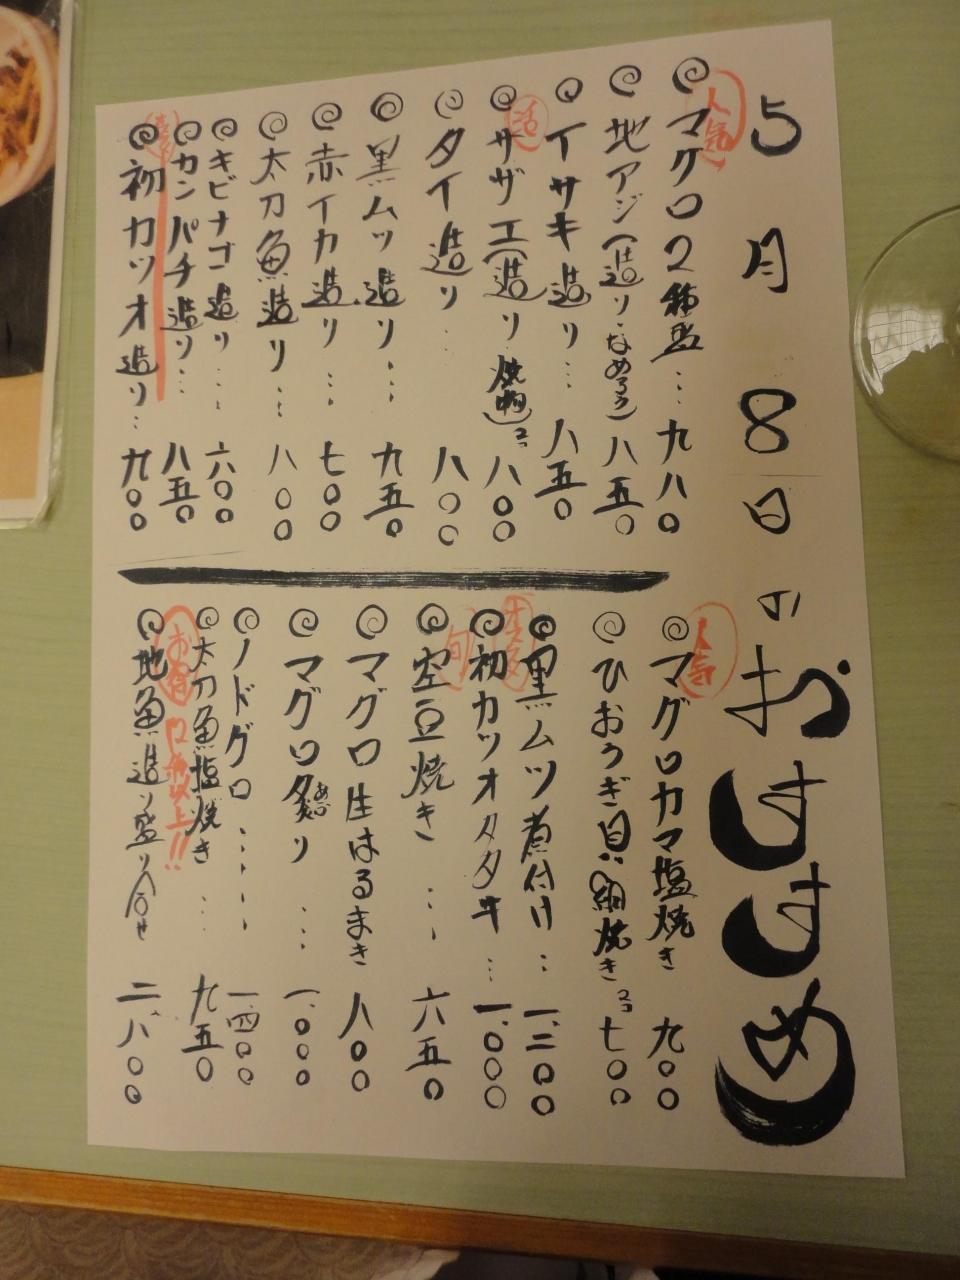 5月8日のおすすめ
人気
マグロ2種盛…九八〇
地アジ(造り・なめろう)八五〇
イサキ造り…八五〇
活
サザエ(造り 焼物)2コ八〇〇
タイ造り…八〇〇
黒ムツ造り…九五〇
赤イカ造り…七〇〇
太刀魚造り…八〇〇
キビナゴ造り…六〇〇
カンパチ造り…八五〇
初カツオ造り…九〇〇
人気
マグロカマ塩焼き 九〇〇
ひおうぎ貝網焼き2コ七〇〇
黒ムツ煮付け…一、二〇〇
初カツオタタキ…一、〇〇〇
旬
空豆焼き…六五〇
マグロ生はるまき 八〇〇
マグロ炙り…一、〇〇〇
あぶ
ノドグロ……一、四〇〇
太刀魚塩焼き…九五〇
以上!!
地魚造り盛り合せ 二、八〇〇